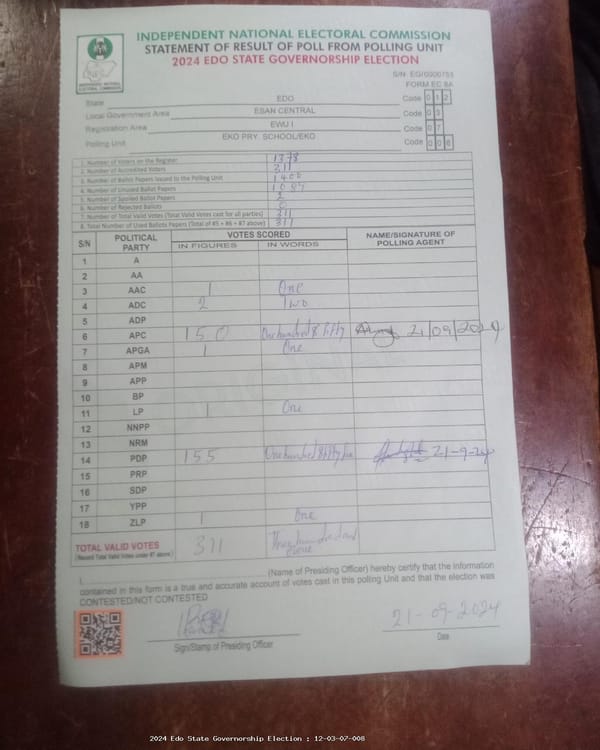 INDEPENDENT NATIONAL ELECTORAL COMMISSION
STATEMENT OF RESULT OF POLL FROM POLLING UNIT
2024 EDO STATE GOVERNORSHIP ELECTION
FORM EC 8A
State EDO Code 0 1 2
Local Government Area ESAN CENTRAL Code 0 3
Registration Area EWU I Code 0 7
Polling Unit EKO PRY. SCHOOL/EKO Code 0 0 8
1. Number of Voters on the Register 1378
2. Number of Accredited Voters 311
3. Number of Ballot Papers Issued to the Polling Unit 1400
4. Number of Unused Ballot Papers
5. Number of Spoiled Ballot Papers
6. Number of Rejected Ballots 0
7. Number of Total Valid Votes (Total Valid Votes cast for all parties) 311
8. Total Number of Used Ballots Papers (Total of #5 + #6 + #7 above) 311
S/N POLITICAL PARTY VOTES SCORED NAME/SIGNATURE OF POLLING AGENT
IN FIGURES IN WORDS
1 A
2 AA
3 AAC 1 One
4 ADC 2 Two
5 ADP
6 APC 150 One hundred & fifty 21/09/2024
7 APGA 1 One
8 APM
9 APP
10 BP
11 LP 1 One
12 NNPP
13 NRM
14 PDP 155 One hundred & fifty five 21-9-24
15 PRP
16 SDP
17 YPP
18 ZLP 1 One
TOTAL VALID VOTES 311 Three hundred and
(Record Total Valid Votes under #7 above)
I, (Name of Presiding Officer) hereby certify that the information
contained in this form is a true and accurate account of votes cast in this polling Unit and that the election was
CONTESTED/NOT CONTESTED
21-09-2024
Sign/Stamp of Presiding Officer Date
2024 Edo State Governorship Election : 12-03-07-008